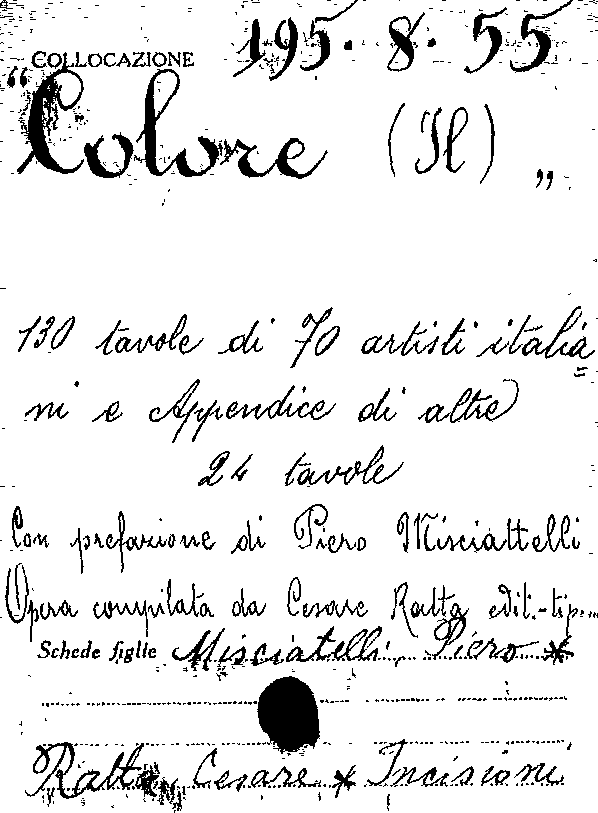 COLLOCAZIONE 195. 8. 55
"Colore (Il) „
130 tavole di 70 artisti italia=
ni e Appendice di altre
24 tavole
Con prefazione di Piero Misciattelli
Opera compilata da Cesare Ratta edit.-tip...
Schede figlie Misciatelli, Piero *
Ratta, Cesare * Incisioni